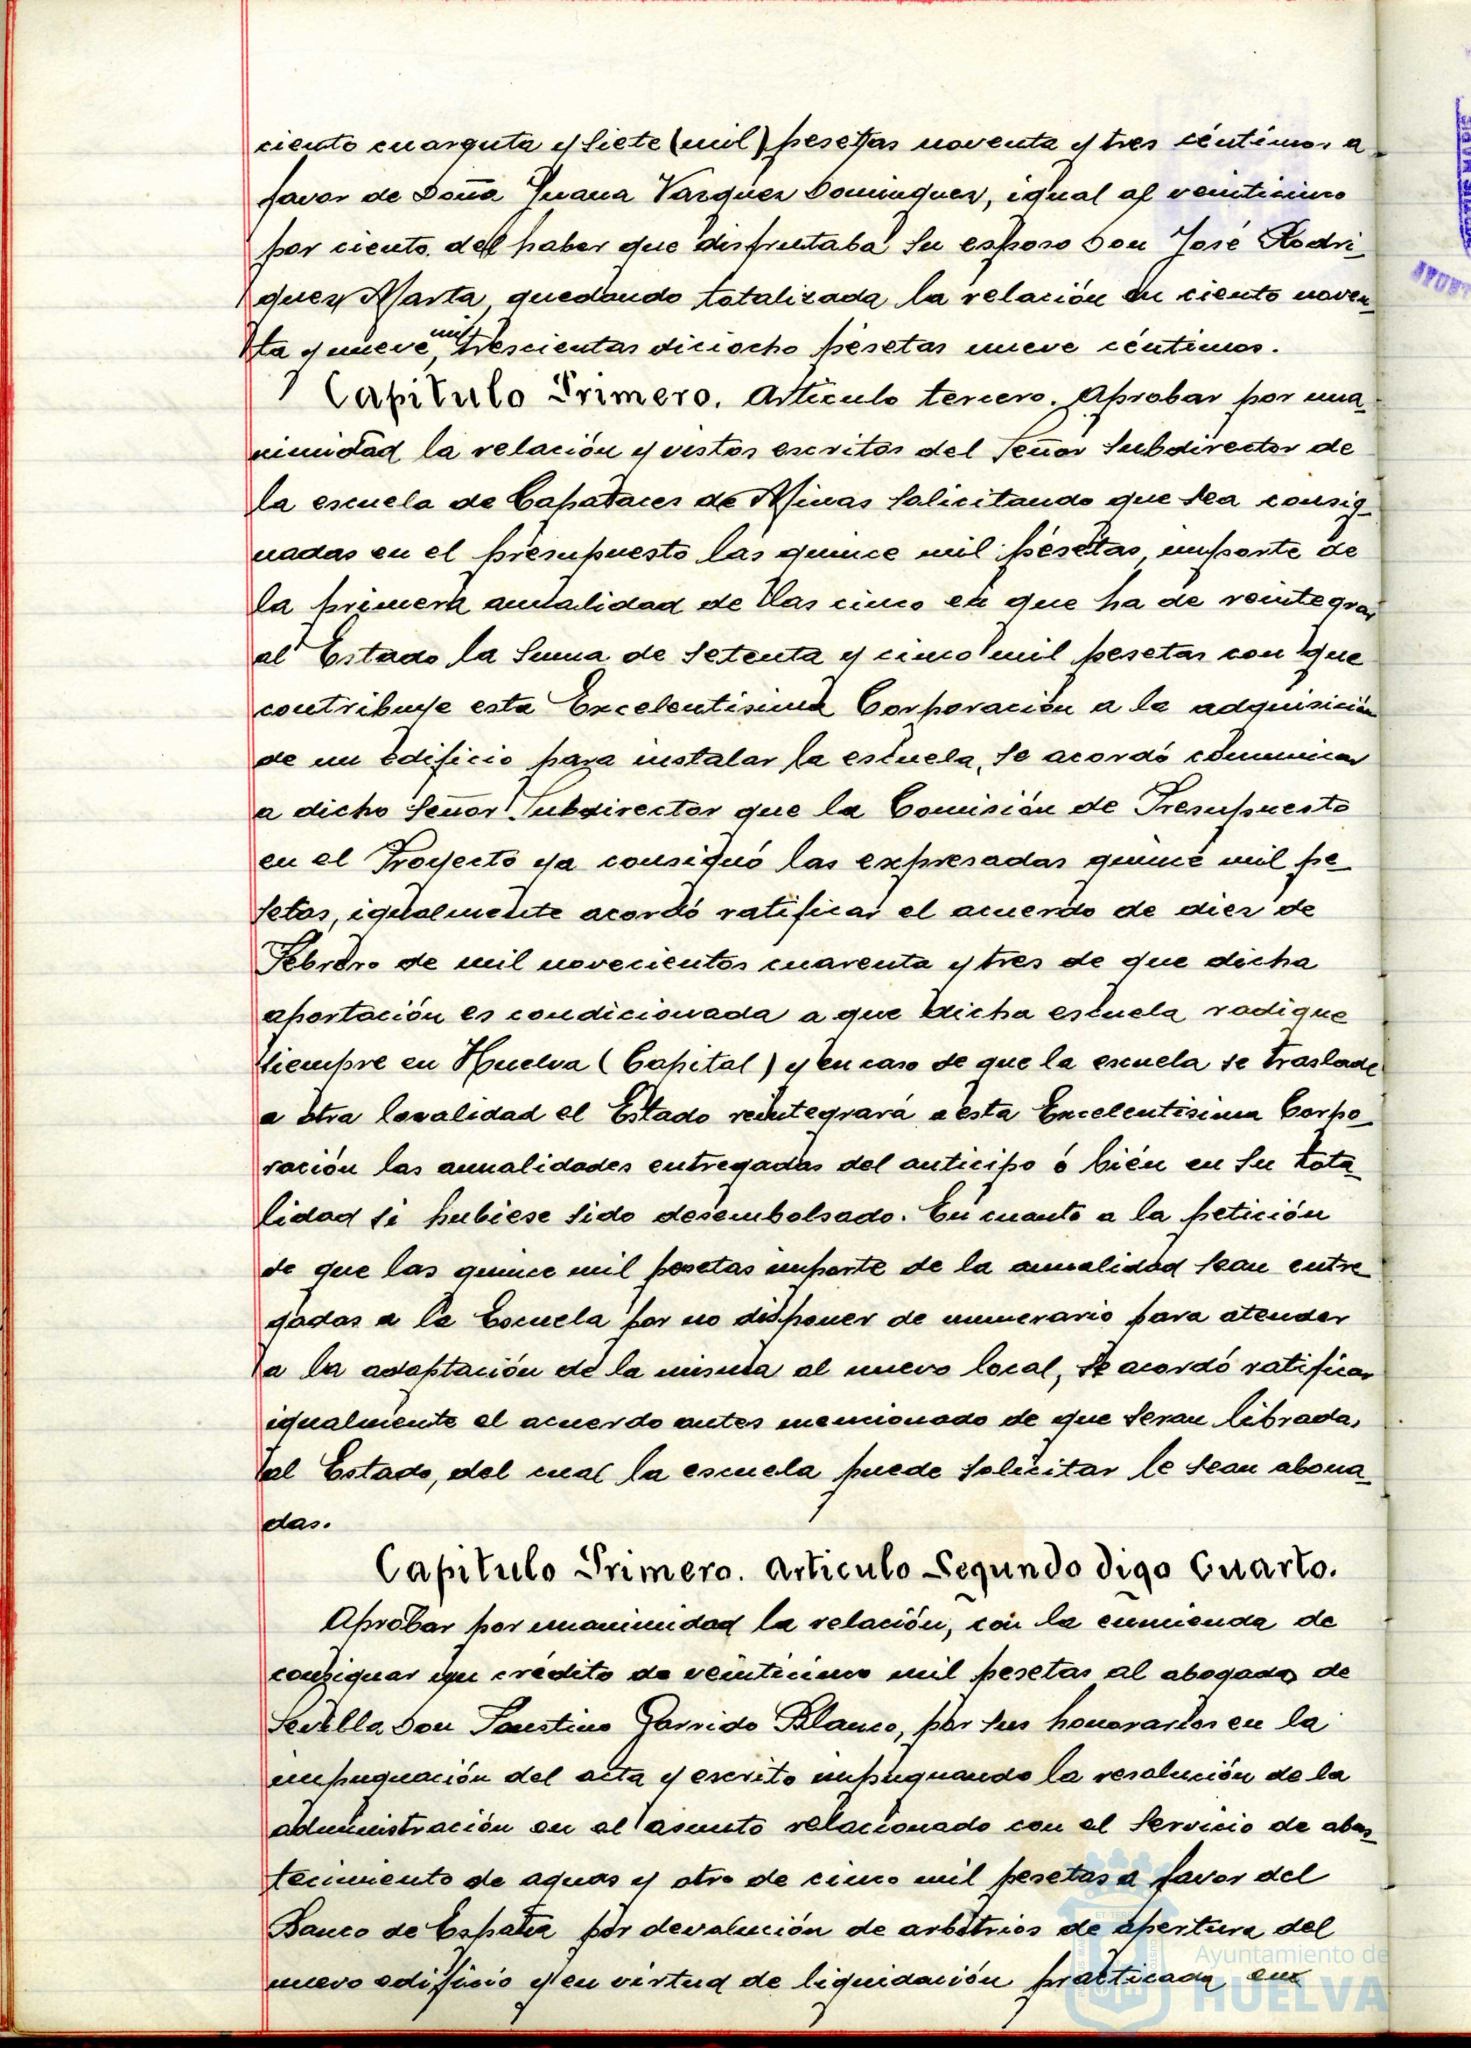 ciento cuarenta y siete (mil) pesetas noventa y tres céntimos a
favor de Doña Juana Vazquez Dominguez, igual al veinticinco
por ciento del haber que disfrutaba su esposo Don José Rodri-
guez Marta, quedando totalizada la relación en ciento noven-
ta y nueve, mil trescientas dieciocho pésetas nueve céntimos.
Capitulo Primero. Articulo tercero. Aprobar por una-
nimidad la relación y vistos escritos del Señor Subdirector de
la escuela de Capataces de Minas solicitando que sea consig-
nadas en el présupuesto las quince mil pésetas, importe de
la primera anualidad de las cinco en que ha de reintegrar
al Estado la suma de setenta y cinco mil pesetas con que
contribuye esta Excelentisima Corporación a la adquisición
de un edificio para instalar la escuela, se acordó comunicar
a dicho Señor Subdirector que la Comisión de Presupuesto
en el Proyecto ya consignó las expresadas quince mil pe-
setas, igualmente acordó ratificar el acuerdo de diez de
Febrero de mil novecientos cuarenta y tres de que dicha
aportación es condicionada a que dicha escuela radique
siempre en Huelva (Capital) y en caso de que la escuela se traslade
a otra localidad el Estado reintegrará a esta Excelentisima Corpo-
ración las anualidades entregadas del anticipo ó bién en su tota-
lidad si hubiese sido desembolsado. En cuanto a la petición
de que las quince mil pesetas importe de la anualidad sean entre-
gadas a la Escuela por no disponer de numerario para atender
a la adaptación de la misma al nuevo local, se acordó ratificar
igualmente el acuerdo antes mencionado de que seran libradas
al Estado, del cual la escuela puede solicitar le sean abona-
das.
Capitulo Primero. Articulo Segundo digo Cuarto.
Aprobar por unanimidad la relación, con la enmienda de
consignar un crédito de veinticinco mil pesetas al abogado de
Sevilla Don Faustino Garrido Blanco, por sus honorarios en la
impugnación del acta y escrito impugnando la resolución de la
administración en el asunto relacionado con el servicio de abas-
tecimiento de aguas y otro de cinco mil pesetas a favor del
Banco de España por devolución de arbitrios de apertura del
nuevo edificio y en virtud de liquidación practicada en
Ayuntamiento de
HUELVA